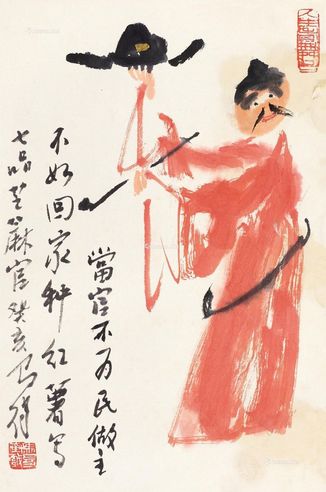 當官不为民做主
不如回家种红薯 写
七品芝麻官 癸亥 马得